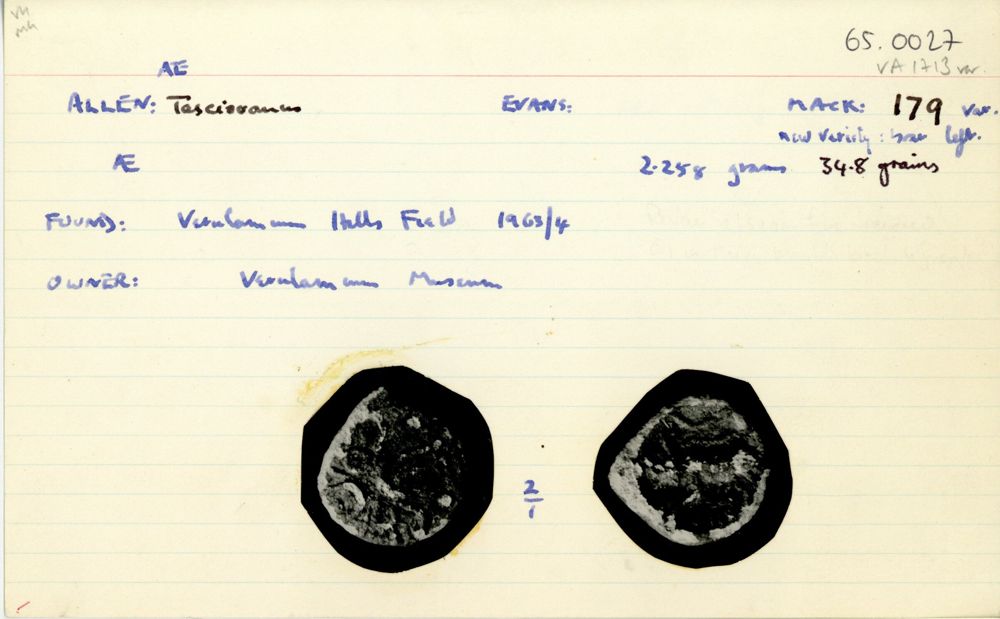 65.0027
VA 1713 var.
Æ
ALLEN: Tasciovanus EVANS: MACK: 179 var.
new variety: boar left.
Æ 2.258 grams 34.8 grains
FOUND: Verulamium Hills Field 1963/4
OWNER: Verulamium Museum
2/1